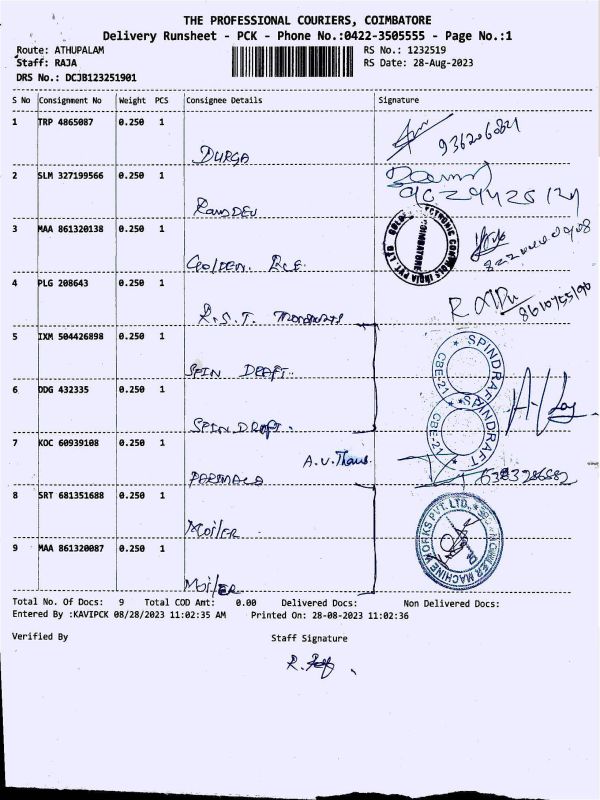 THE PROFESSIONAL COURIERS, COIMBATORE
Delivery Runsheet - PCK - Phone No.:0422-3505555 - Page No.:1
Route: ATHUPALAM RS No.: 1232519
Staff: RAJA RS Date: 28-Aug-2023
DRS No.: DCJB123251901
S No Consignment No Weight PCS Consignee Details Signature
1 TRP 4865087 0.250 1
DURGA
2 SLM 327199566 0.250 1
RamDEV
3 MAA 861320138 0.250 1
Golden.
4 PLG 208643 0.250 1
R.S.T. Transports
5 IXM 504426898 0.250 1
SPIN DRAFT.
SPINDRAFT
CBE-21
6 DDG 432335 0.250 1
SPIN DRAFT.
SPINDRAFT
CBE-21
7 KOC 60939108 0.250 1
PARIMALA
6383286682
8 SRT 681351688 0.250 1
Moiler
9 MAA 861320087 0.250 1
Moiler
Total No. Of Docs: 9 Total COD Amt: 0.00 Delivered Docs: Non Delivered Docs:
Entered By :KAVIPCK 08/28/2023 11:02:35 AM Printed On: 28-08-2023 11:02:36
Verified By Staff Signature